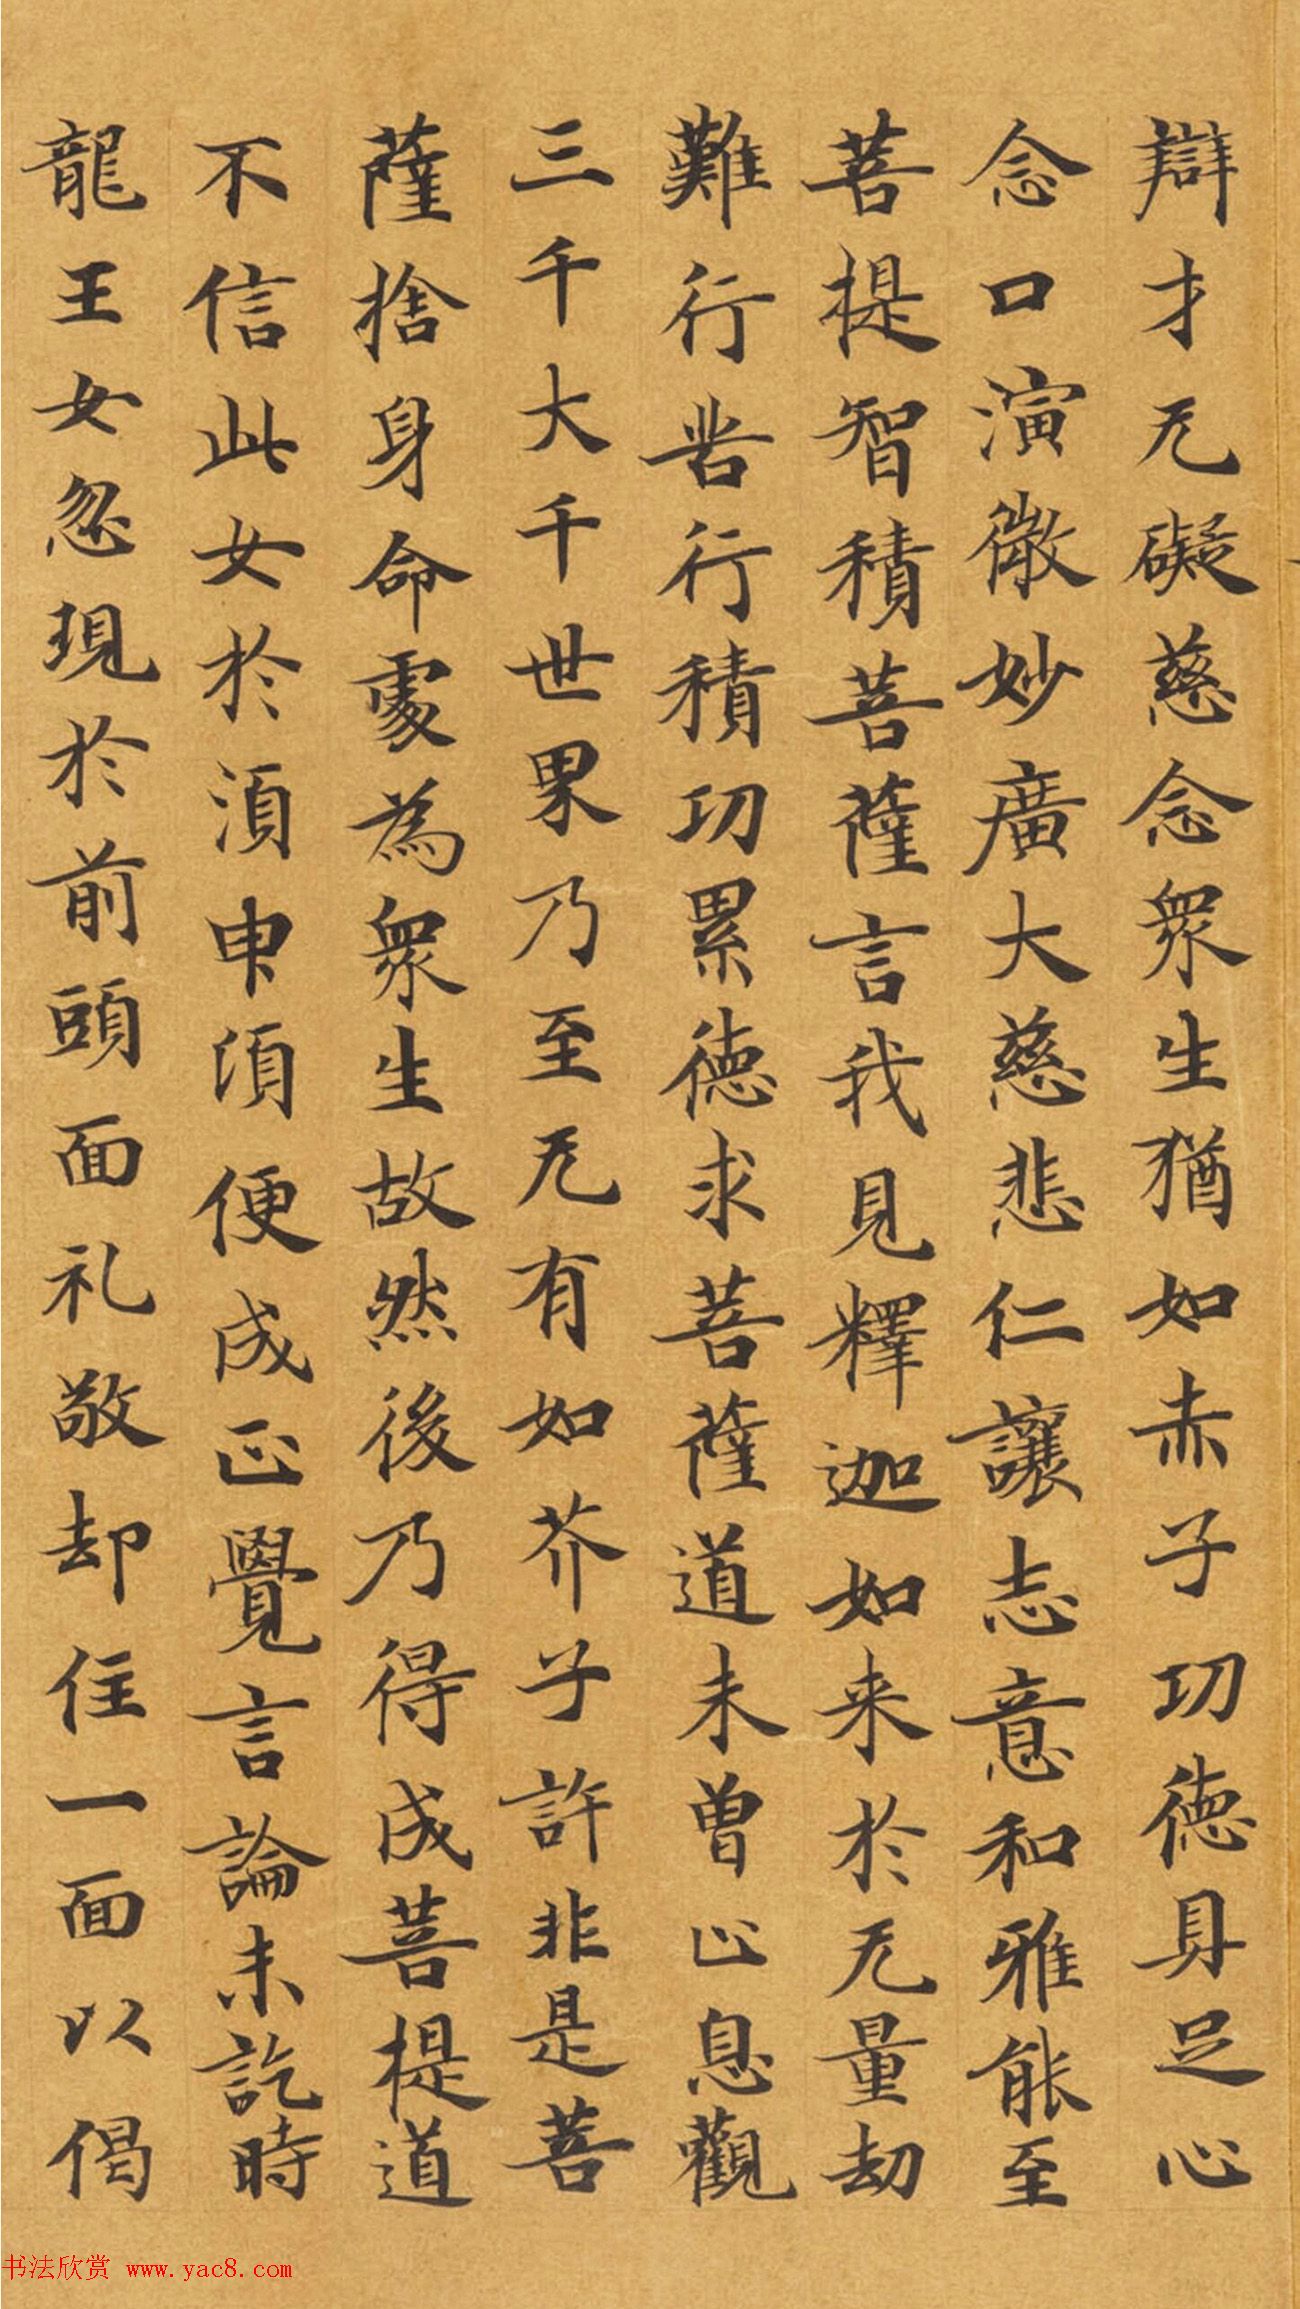 辯才无礙慈念衆生猶如赤子功德具足心
念口演微妙廣大慈悲仁讓志意和雅能至
菩提智積菩薩言我見釋迦如来於无量劫
難行苦行積功累德求菩薩道未曾止息觀
三千大千世界乃至无有如芥子許非是菩
薩捨身命處為衆生故然後乃得成菩提道
不信此女於須申須便成正覺言論未訖時
龍王女忽現於前頭面礼敬却住一面以偈
书法欣赏 www.yac8.com